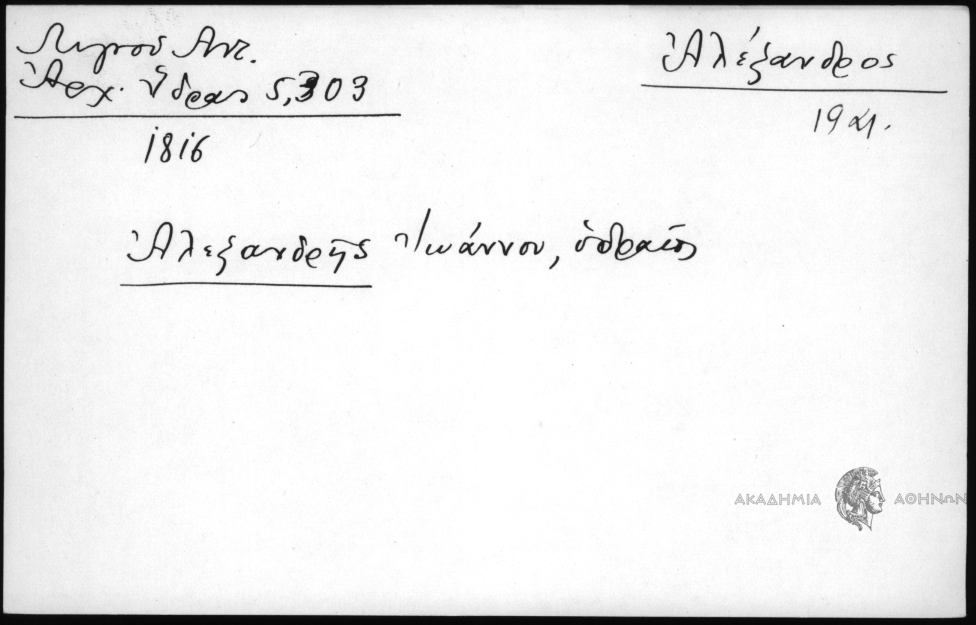 Λιγνοῦ Ἀντ.
Ἀρχ. Ὕδρας 5,303
1816
Ἀλέξανδρος
Ἀλεξανδρῆς Ἰωάννου, ὑδραῖος
ΑΚΑΔΗΜΙΑ ΑΘΗΝΩΝ